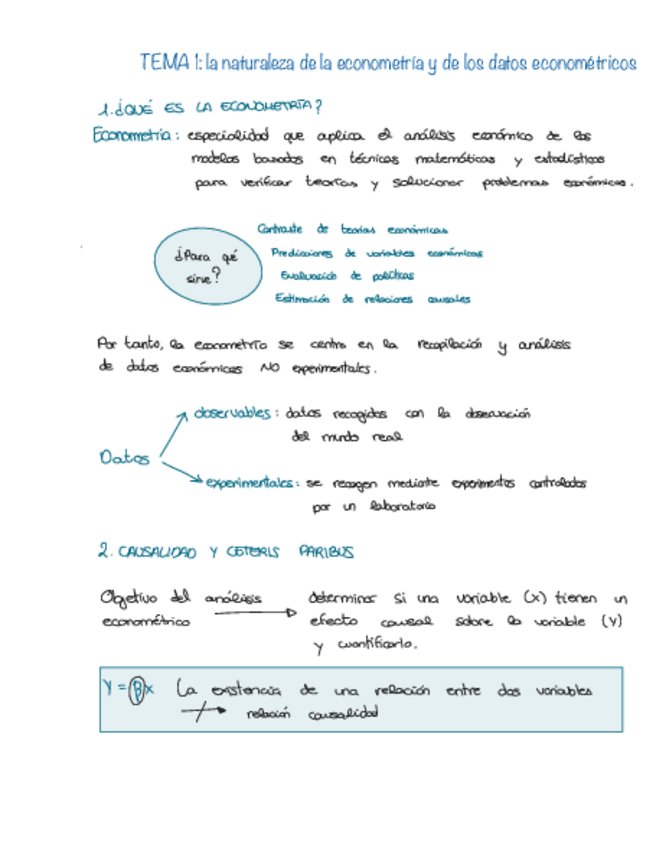 TEMA 1: la naturaleza de la econometría y de los datos econométricos
1. ¿QUÉ ES LA ECONOMETRÍA?
Econometría: especialidad que aplica el análisis económico de los
modelos basados en técnicas matemáticas y estadísticas
para verificar teorías y solucionar problemas económicos.
¿Para qué
sirve?
Contraste de teorías económicas
Predicciones de variables económicas
Evaluación de políticas
Estimación de relaciones causales
Por tanto, la econometría se centra en la recopilación y análisis
de datos económicos NO experimentales.
Datos
observables: datos recogidos con la observación
del mundo real
experimentales: se recogen mediante experimentos controlados
por un laboratorio
2. CAUSALIDAD Y CETERIS PARIBUS
Objetivo del análisis
econométrico
determinar si una variable (x) tienen un
efecto causal sobre la variable (y)
y cuantificarlo.
Y = βx La existencia de una relación entre dos variables
relación causalidad